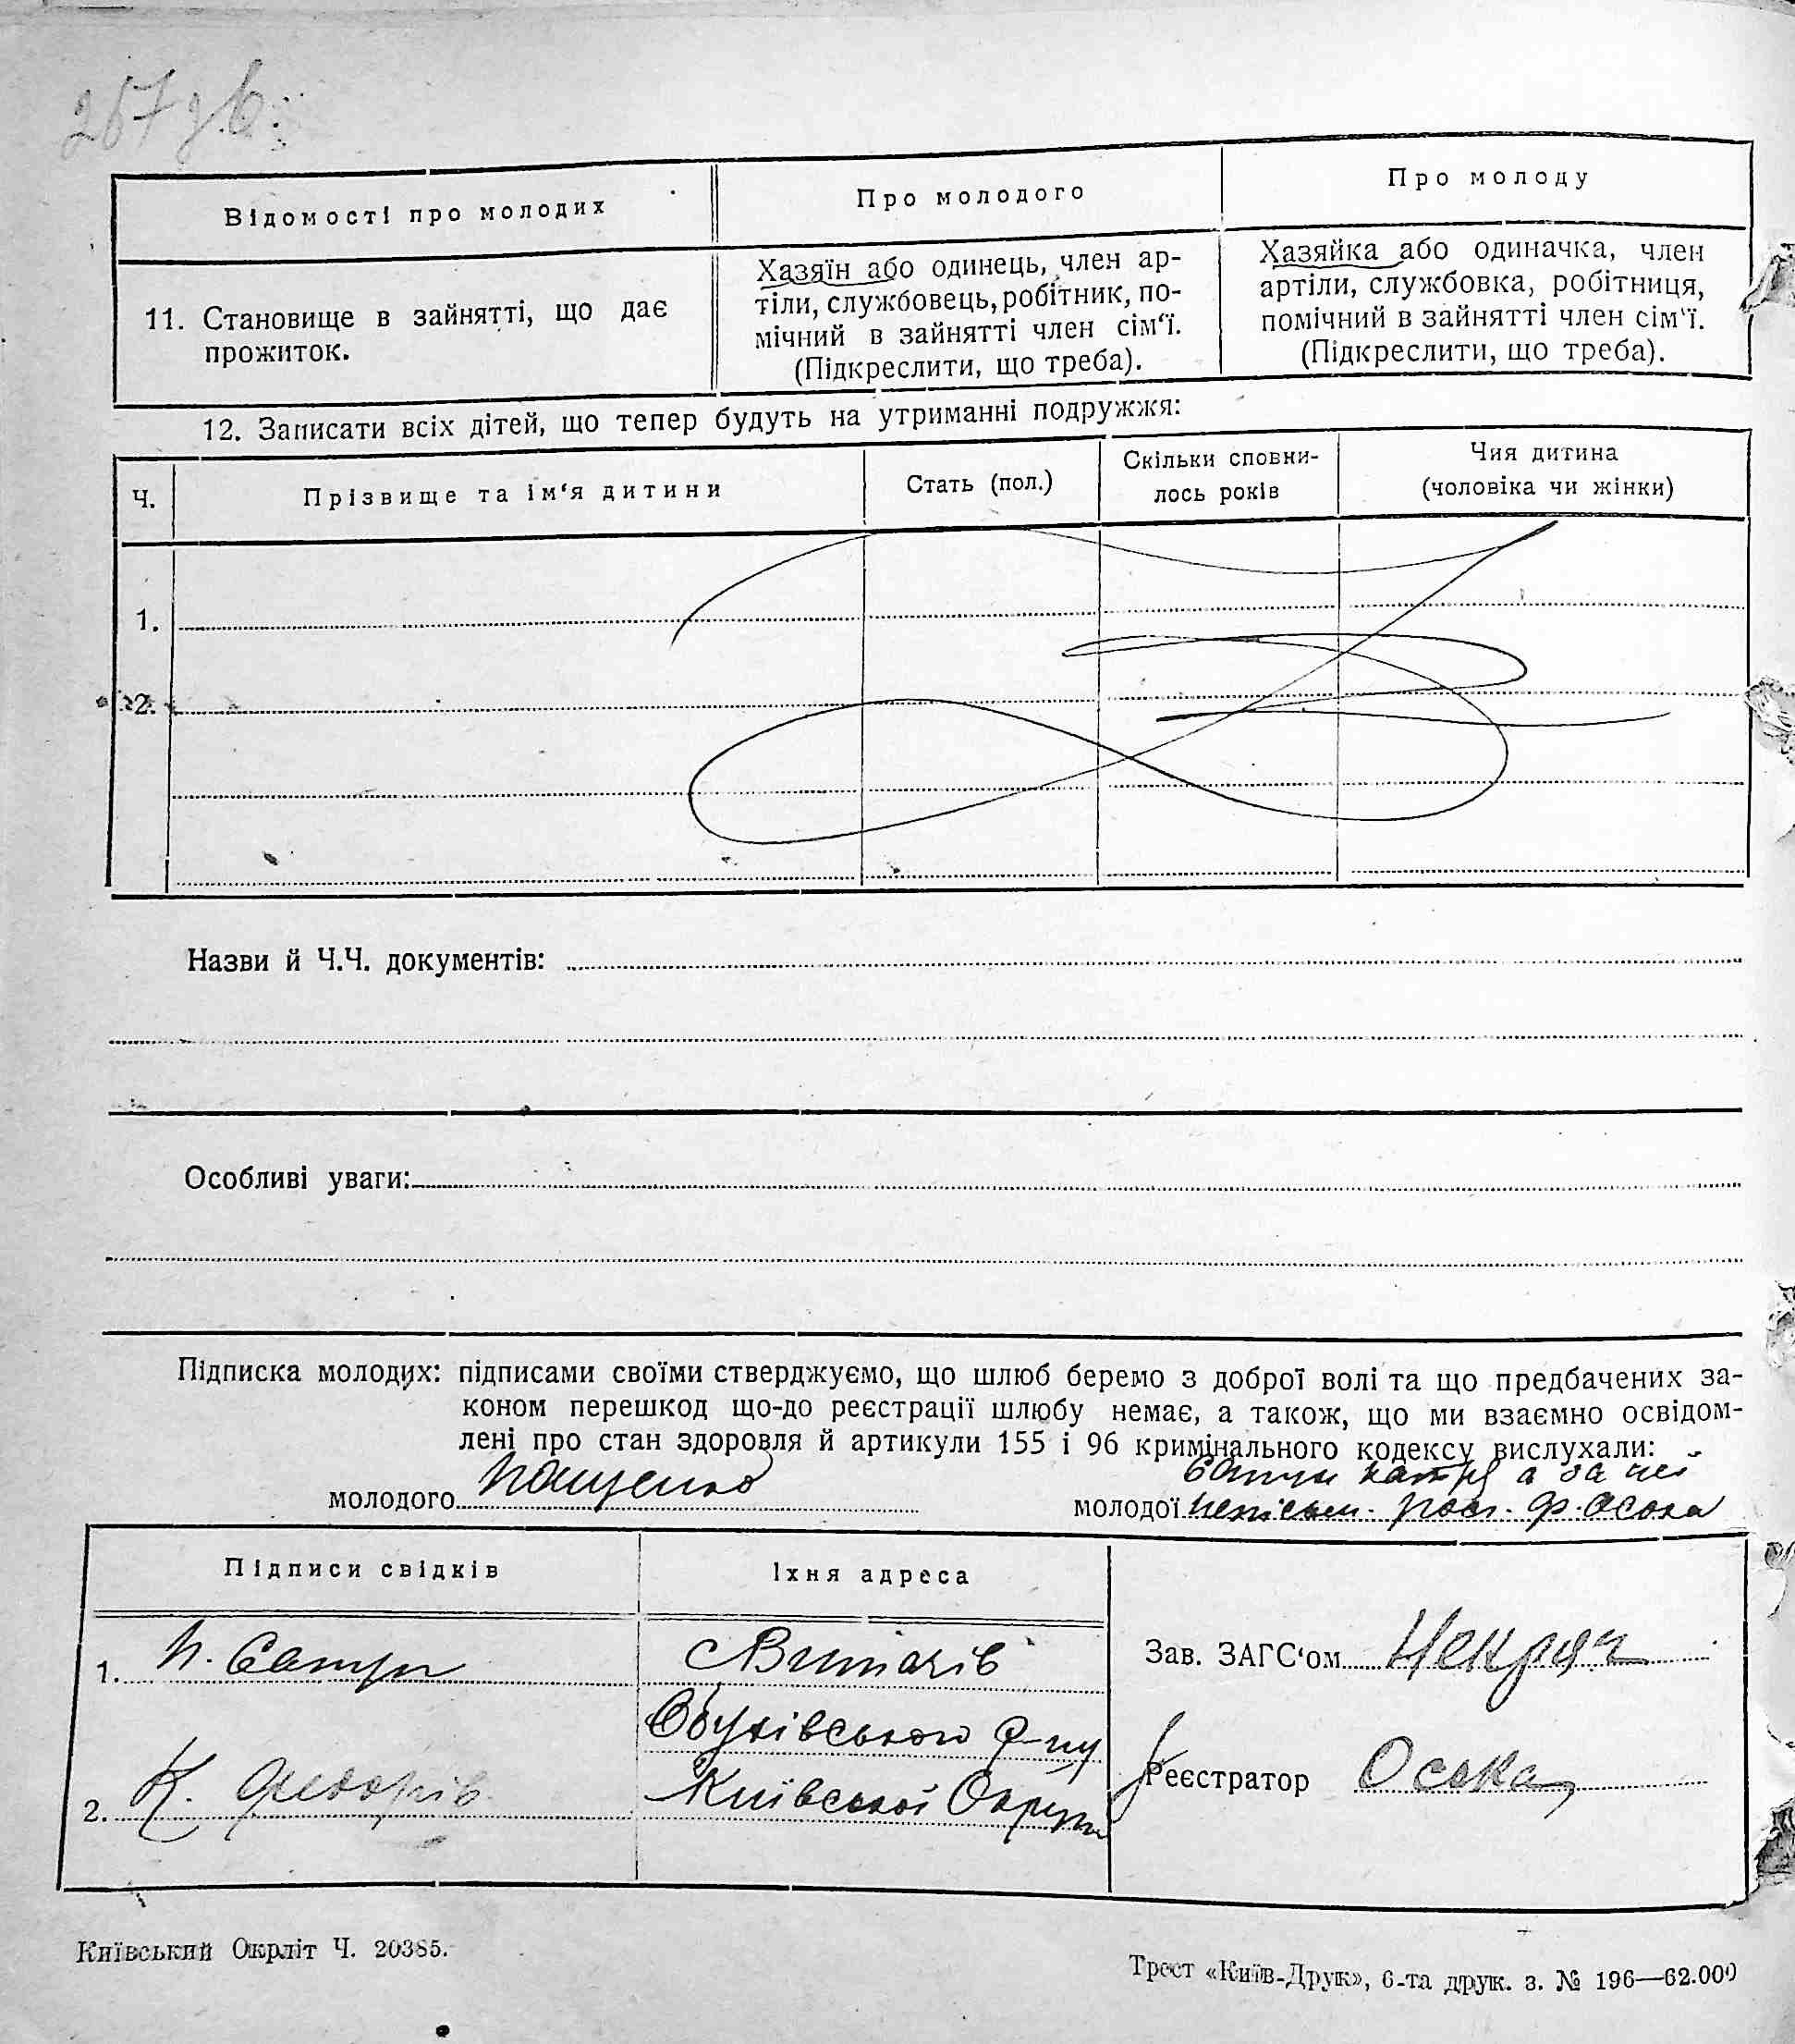 257 зв.
Відомості про молодих
Про молодого
Про молоду
11. Становище в зайнятті, що дає
прожиток.
Хазяїн або одинець, член ар-
тіли, службовець, робітник, по-
мічний в зайнятті член сім‘ї.
(Підкреслити, що треба).
Хазяйка або одиначка, член
артіли, службовка, робітниця,
помічний в зайнятті член сім‘ї.
(Підкреслити, що треба).
12. Записати всіх дітей, що тепер будуть на утриманні подружжя:
Ч.
Прізвище та ім‘я дитини
Стать (пол.)
Скільки сповни-
лось років
Чия дитина
(чоловіка чи жінки)
1.
2.
Назви й Ч.Ч. документів:
Особливі уваги:
Підписка молодих: підписами своїми стверджуємо, що шлюб беремо з доброї волі та що предбачених за-
коном перешкод що-до реєстрації шлюбу немає, а також, що ми взаємно освідом-
лені про стан здоровля й артикули 155 і 96 кримінального кодексу вислухали:
а за неї
молодого Пащенко
молодої непісьм. росп. Ф. Осока
Підписи свідків
Їхня адреса
1.
с Витачів
Обухівського Р-ну
2. К. Федорів
Київської Округи
Зав. ЗАГС‘ом Некряч
Реєстратор Осока
Київський Окрліт Ч. 20385.
Трест «Київ-Друк», 6-та друк. з. № 196—62.000